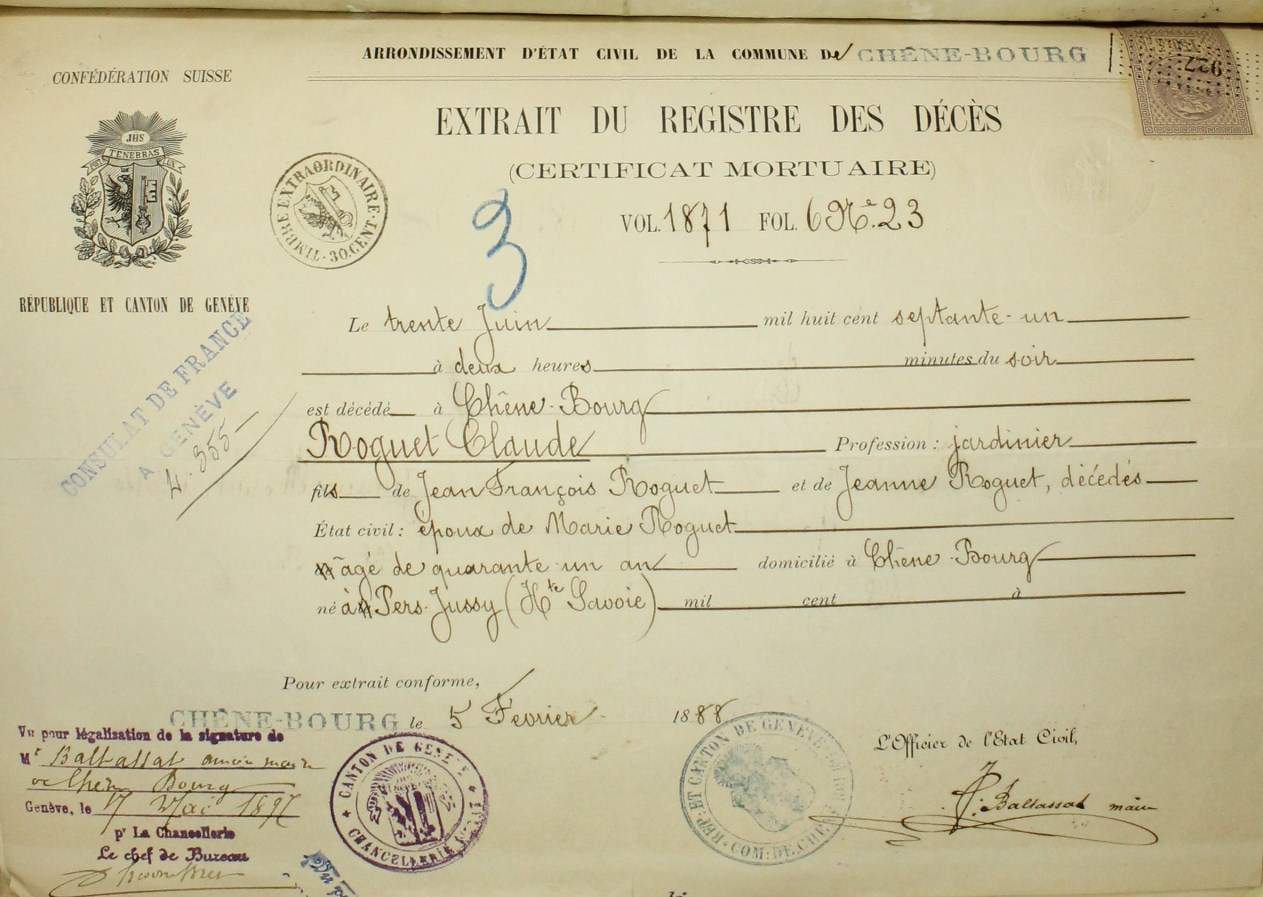 ARRONDISSEMENT D'ÉTAT CIVIL DE LA COMMUNE De CHÊNE-BOURG
CONFÉDÉRATION SUISSE
JHS
POST TENEBRAS LUX
RÉPUBLIQUE ET CANTON DE GENÈVE
TIMBRE EXTRAORDINAIRE
30 CENT
227
EXTRAIT DU REGISTRE DES DÉCÈS
(CERTIFICAT MORTUAIRE)
3
VOL. 1871 FOL. 6 No 23
CONSULAT DE FRANCE
A GENÈVE
4.355
Le trente Juin mil huit cent septante-un
à deux heures minutes du soir
est décédé à Chêne-Bourg
Roguet Claude Profession : jardinier
fils de Jean François Roguet et de Jeanne Roguet, décédés
État civil : époux de Marie Roguet
âgé de quarante un an domicilié à Chêne-Bourg
né à Pers-Jussy (Hte Savoie) mil cent à
Pour extrait conforme,
CHÊNE-BOURG le 5 Fevrier 1888
Vu pour légalization de la signature de
Mr Baltassat ancien maire
de Chêne Bourg
Genève, le 17 Mai 1897
pr La Chancellerie
Le chef de Bureau
CANTON DE GENÈVE
CHANCELLERIE
RÉP. ET CANTON DE GENÈVE
COM: DE CHÊNE
L'Officier de l'Etat Civil,
Baltassat maire